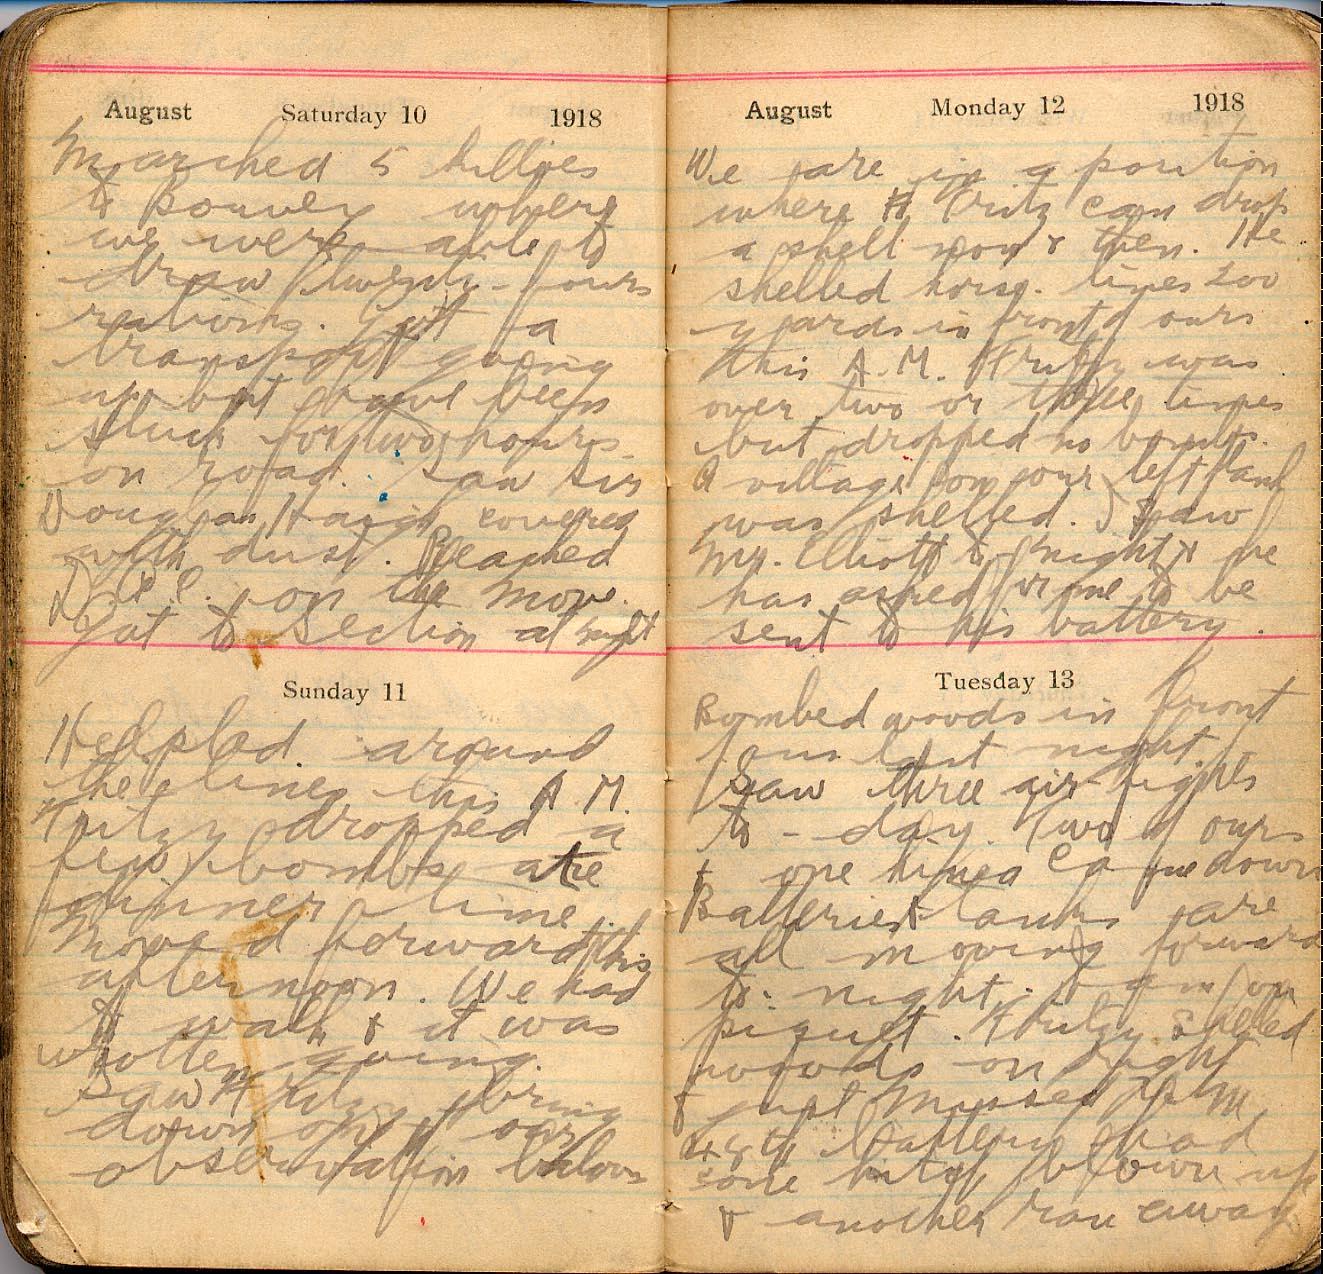 August Saturday 10 1918
Marched 5 killies
to Bouvex where
we were able to
draw twenty-fours
rations. Got a
transport going
up but have been
stuck for two hours
on road. Saw Sir
Douglas Haig covered
with dust. Reached
D.A.C. on the move.
Got to section at night
Sunday 11
Helpled around
the lines this A.M.
Fritzy dropped a
few bombs ate
dinner time.
Moved forward this
afternoon. We had
to walk & it was
rotten going.
Saw Fritzy bring
down one of our
observation baloons
August Monday 12 1918
We are in a position
where Fritz can drop
a shell now & then. He
shelled horse lines 200
yards in front of ours
this A.M. Fritzy was
over two or three times
but dropped no bombs.
A village on our left flank
was shelled. I saw
Mr. Elliott to-night & he
has asked for me to be
sent to his battery.
Tuesday 13
Bombed woods in front
of us last night.
Saw three air fights
to-day. Two of ours
& one came down
Batteries & tanks are
all moving forward
to-night. I am on
picquet. Fritzy shelled
woods on right
& just missed them
48th battery had
one blown up
& another ran away